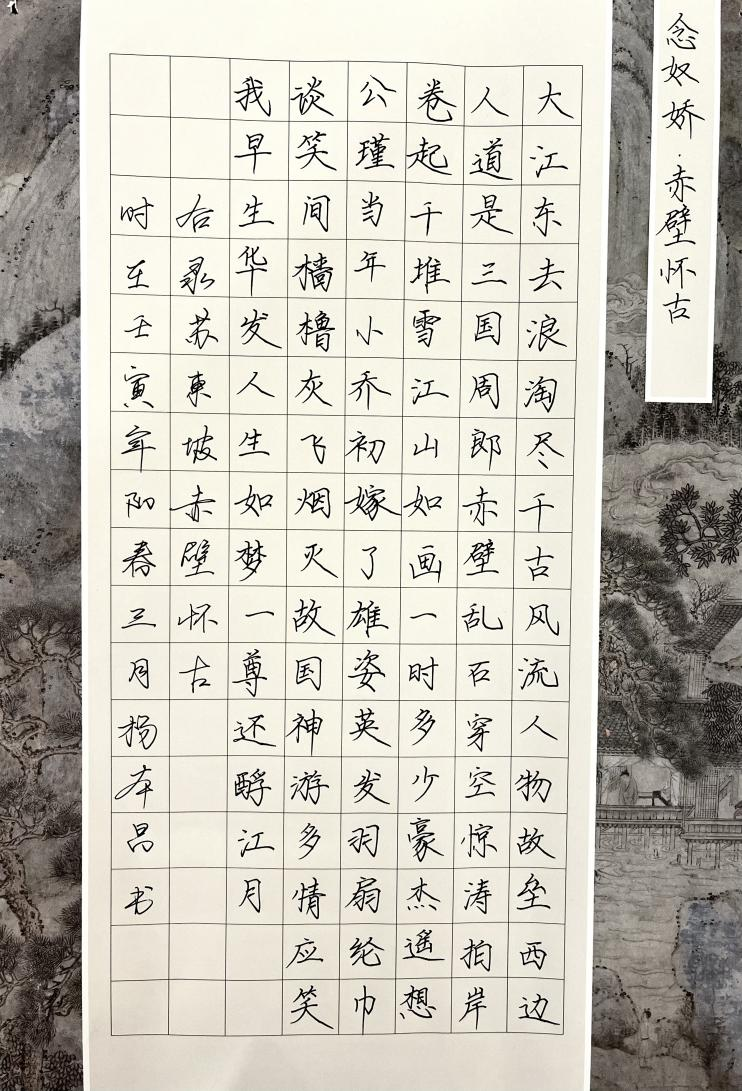 念奴娇·赤壁怀古
大江东去浪淘尽千古风流人物故垒西边
人道是三国周郎赤壁乱石穿空惊涛拍岸
卷起千堆雪江山如画一时多少豪杰遥想
公瑾当年小乔初嫁了雄姿英发羽扇纶巾
谈笑间樯橹灰飞烟灭故国神游多情应笑
我早生华发人生如梦一尊还酹江月
右录苏東坡赤壁怀古
时至壬寅年阳春三月杨本昌书